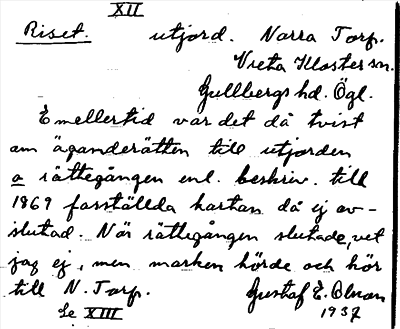 XII
Riset. utjord. Norra Torp.
Vreta Kloster sn.
Gullbergs hd. Ögl.
Emellertid var det då tvist
om äganderätten till utjorden
o rättegången enl. beskriv. till
1869 fastställda kartan då ej av-
slutad. När rättegången slutade, vet
jag ej, men marken hörde och hör
till N. Torp. Gustaf E. Olson
Se XIII 1937